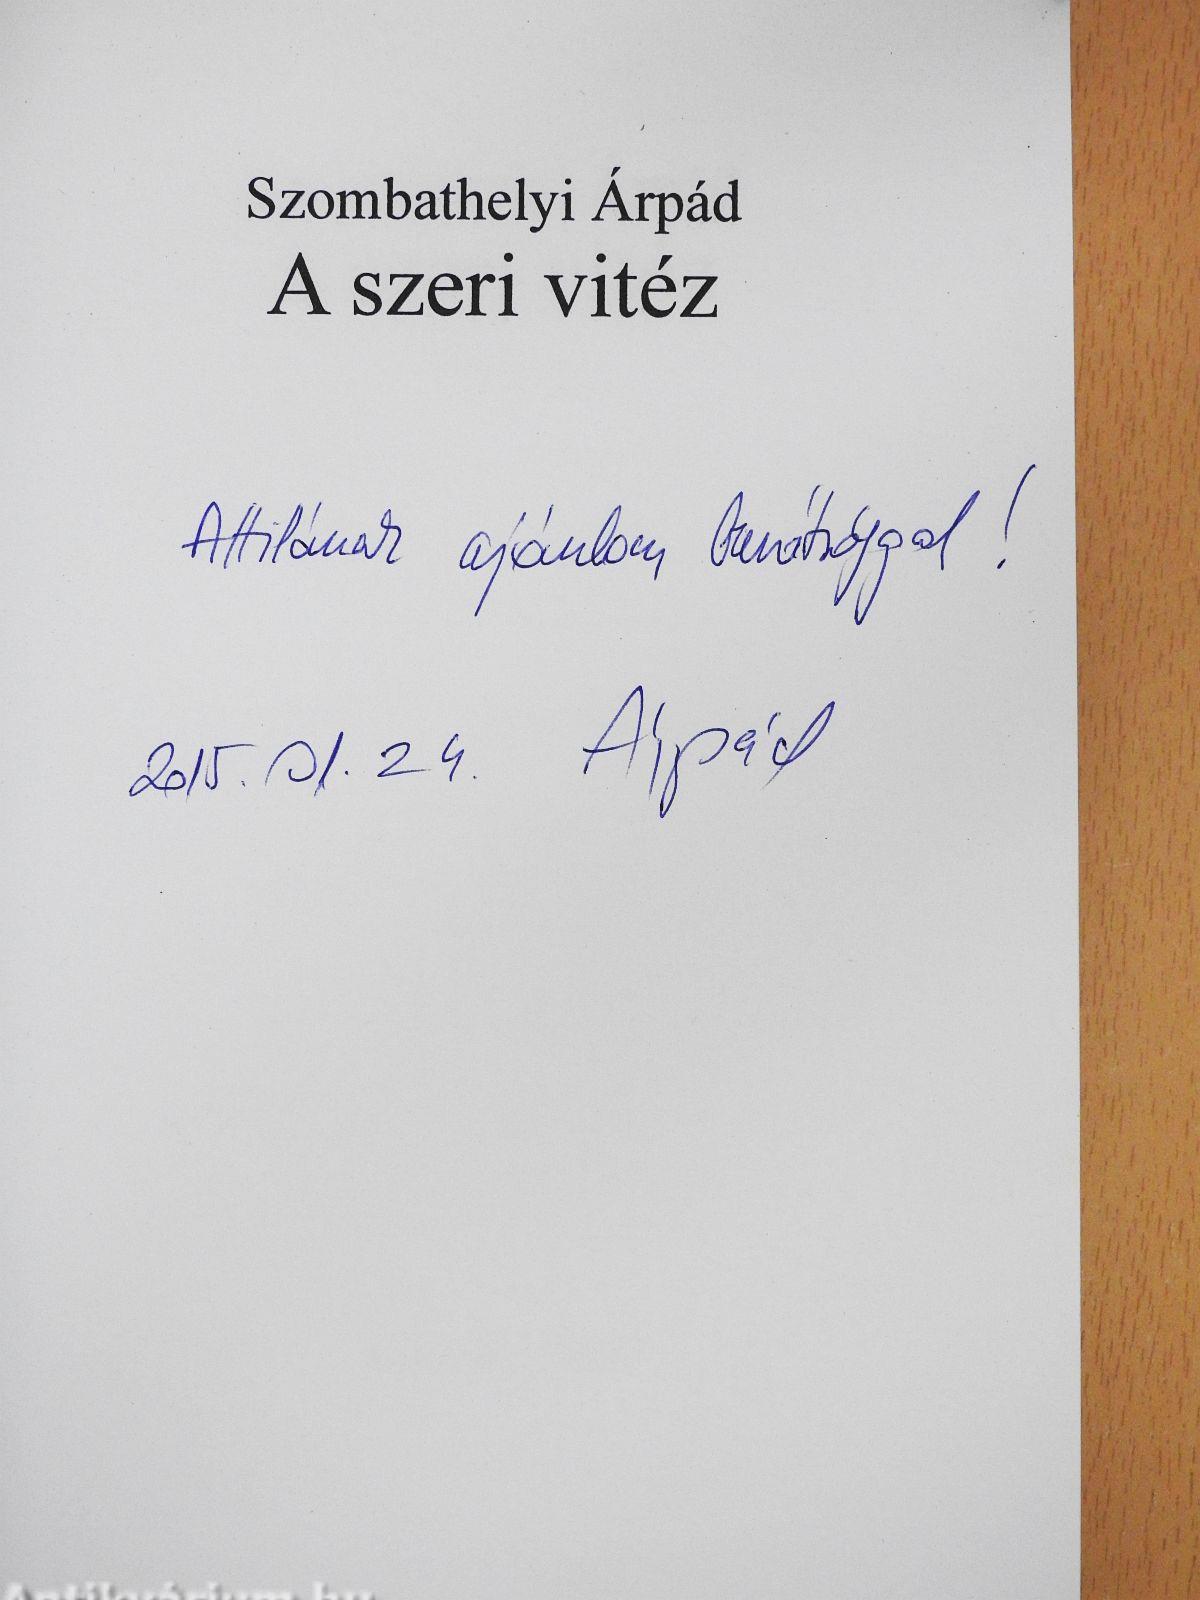 Szombathelyi Árpád
A szeri vitéz
Attilának ajánlom barátsággal!
2015. 01. 24. Árpád
Antikvárium.hu